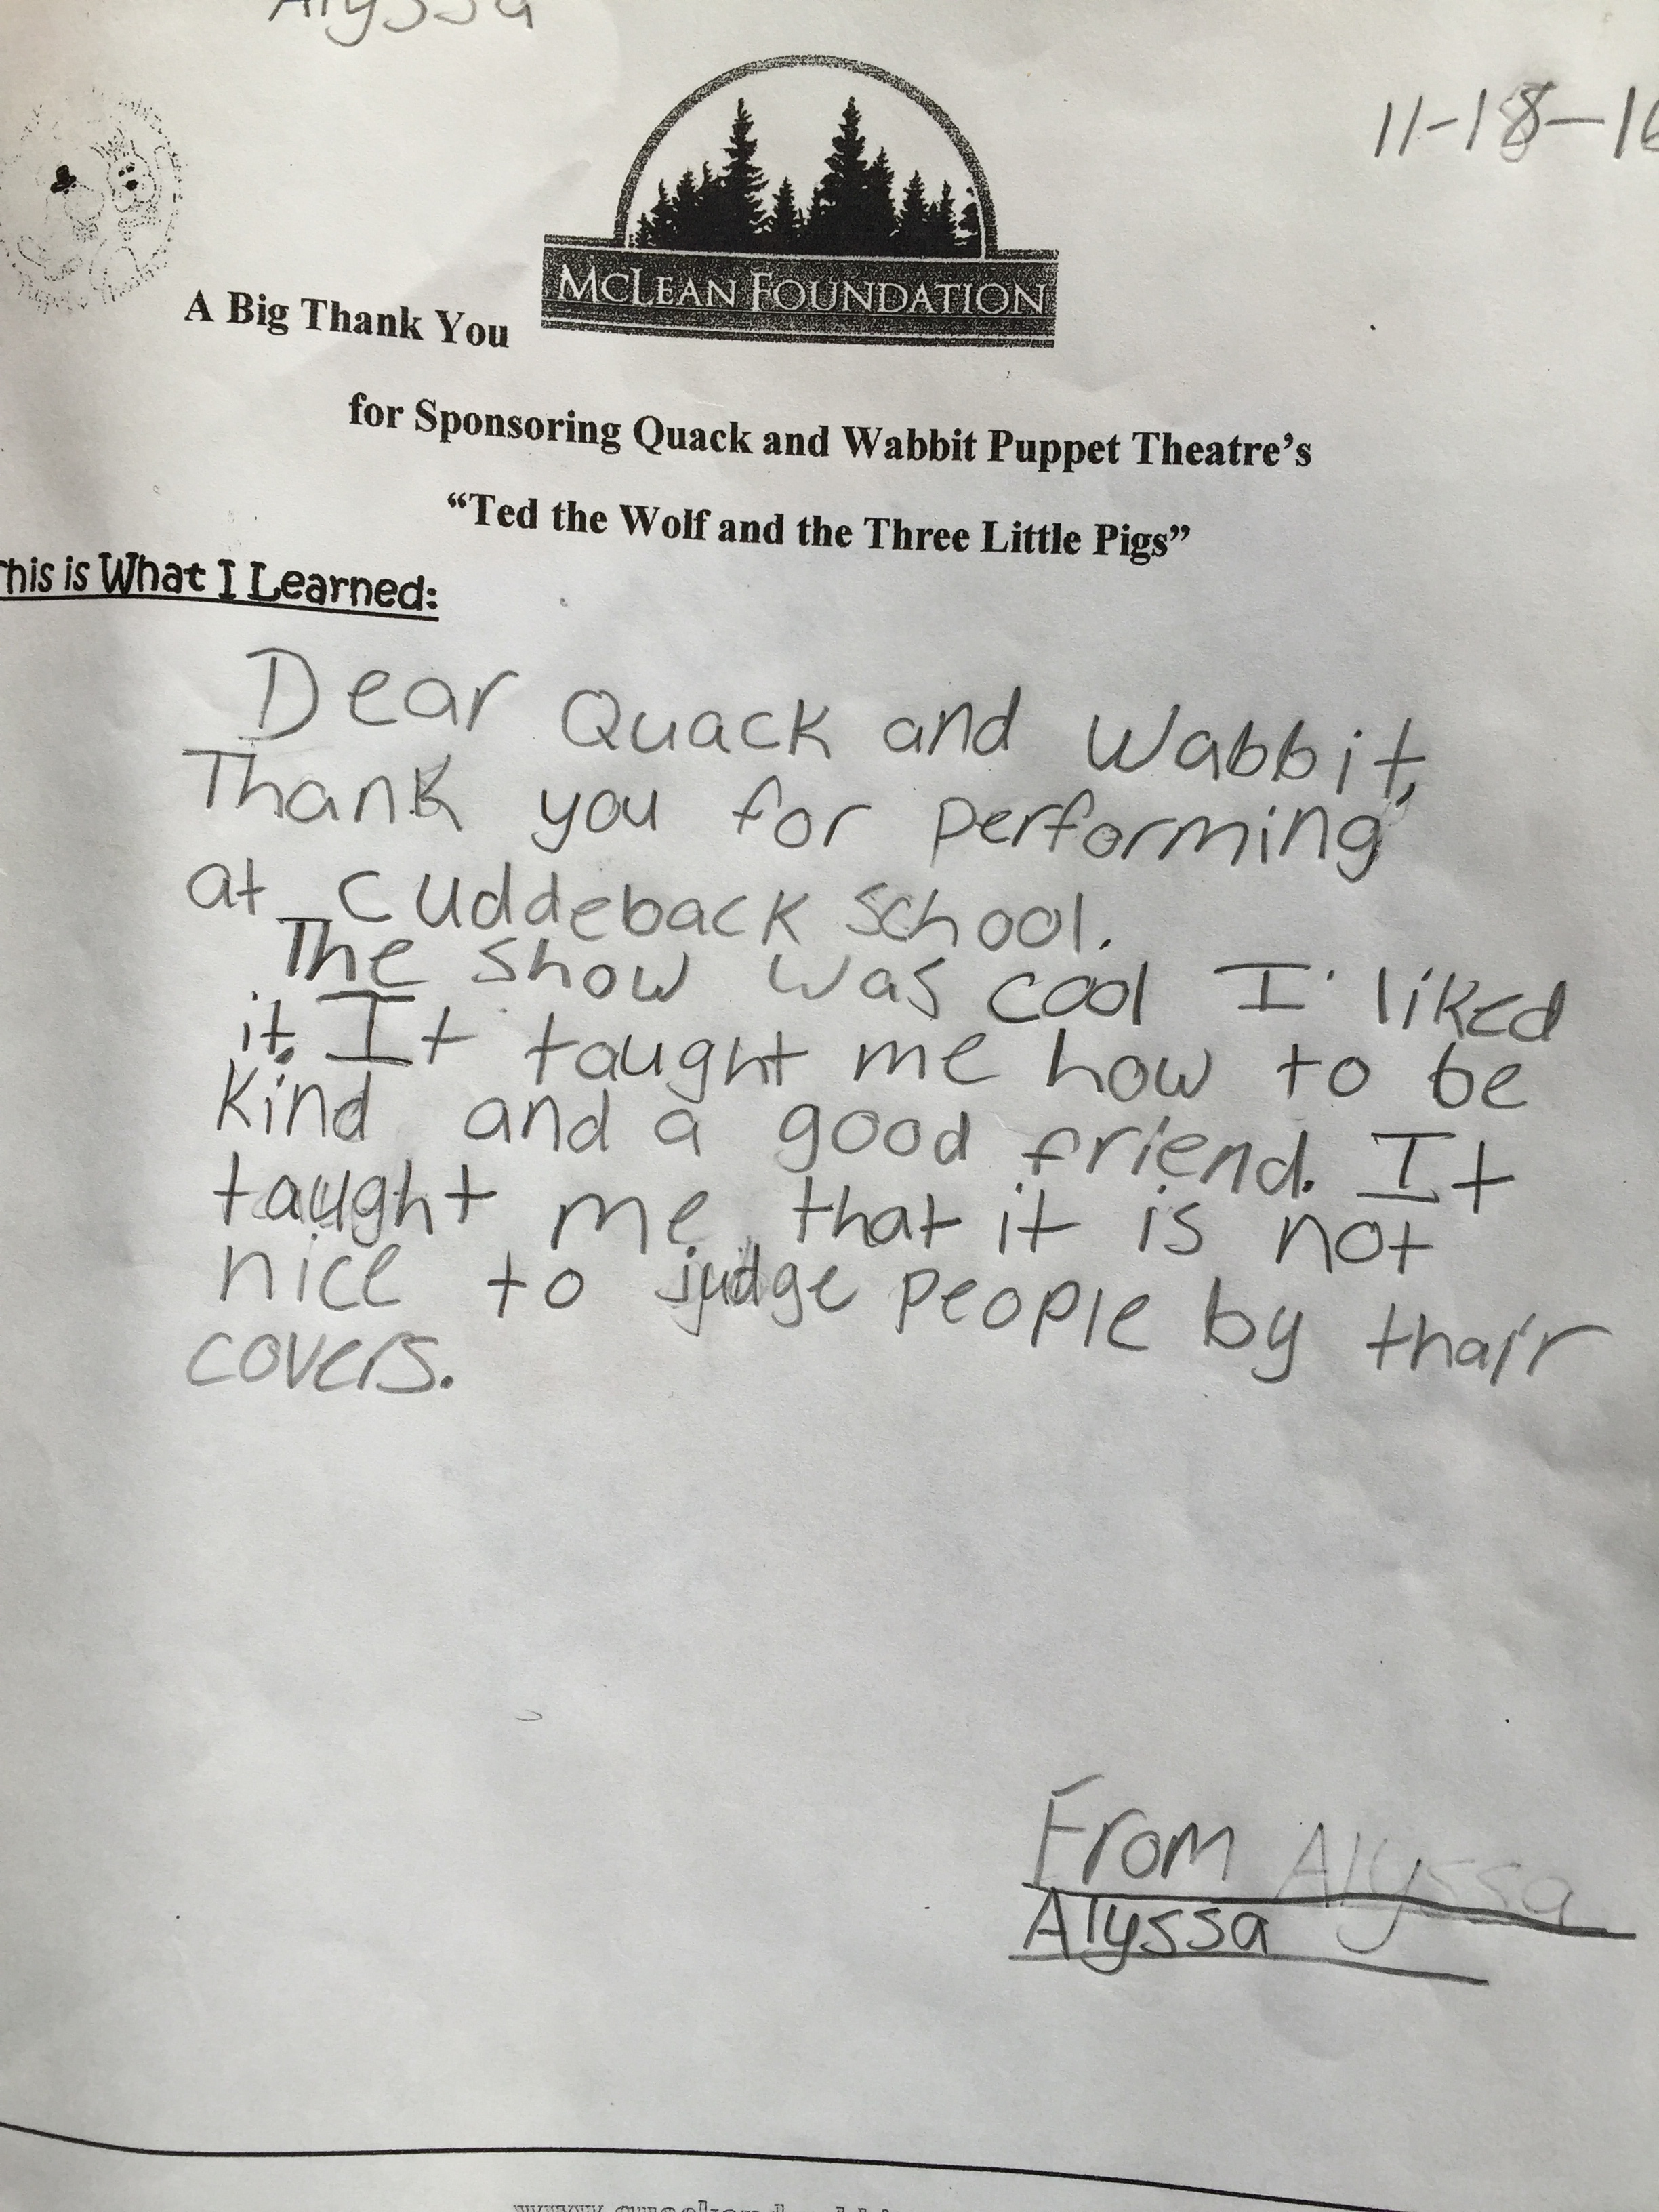 Alyssa
11-18-16
McLean Foundation
A Big Thank You
for Sponsoring Quack and Wabbit Puppet Theatre's
“Ted the Wolf and the Three Little Pigs”
This is What I Learned:
Dear Quack and Wabbit,
Thank you for performing
at cuddeback school.
The show was cool I liked
it. It taught me how to be
kind and a good friend. It
taught me that it is not
nice to judge people by thair
covers.
From Alyssa
Alyssa